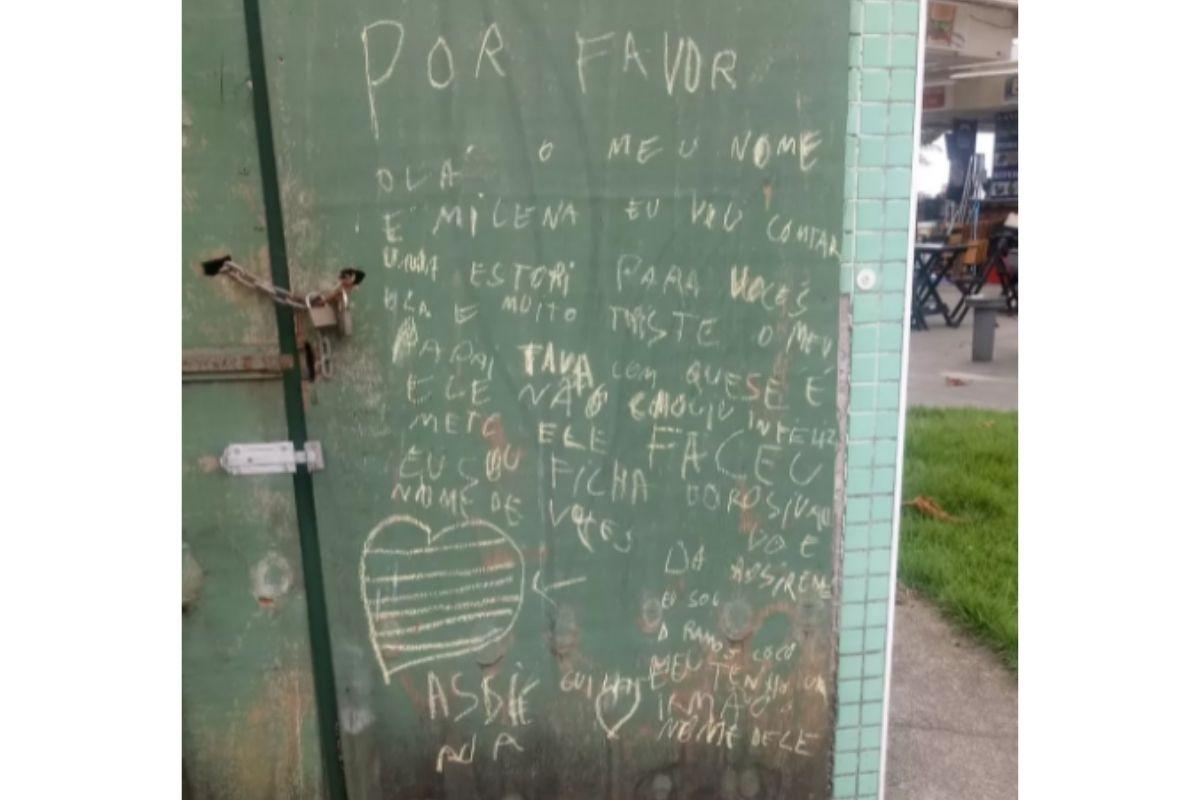 POR FAVOR
OLÁ O MEU NOME
E MILENA EU VOU CONTAR
UMA ESTORI PARA VOCES
ELA E MUITO TRISTE O MEU
PAPAI TAVA COM QUESE É
ELE NÃO INFELIZ
METE ELE FACEU
EU SOU FICHA DOROSIVAO
NOME DE VOCES DO E
DA ADSIRENE
EU SOU
D RAMOS COCO
MEU TENHO UM
ASDE IRMÃO
NOME DELE